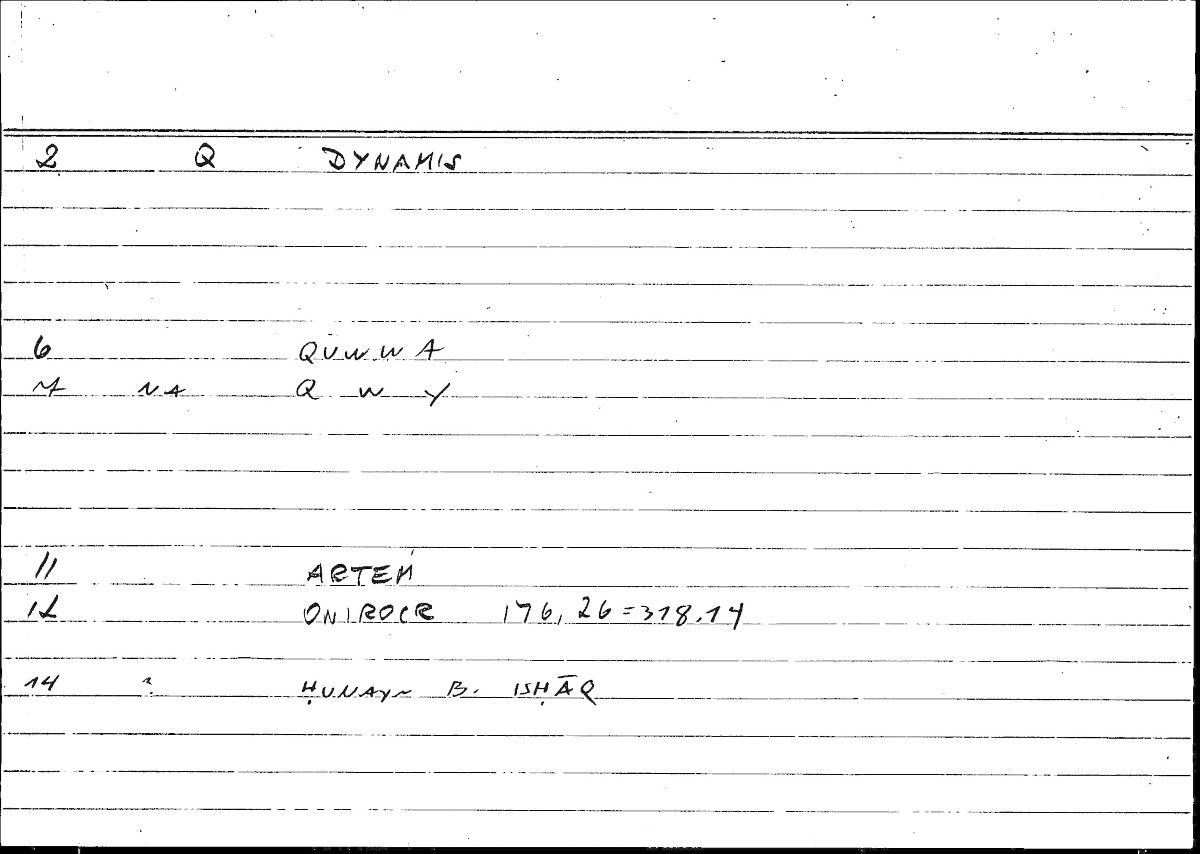 2 Q DYNAMIS
6 QUWWA
7 NA Q W Y
11 ARTEM
12 ONIROCR 176, 26=318.14
14 ḤUNAYN B. ISḤĀQ